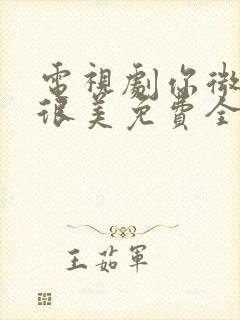 電視劇你微
很美免費全
王茹軍